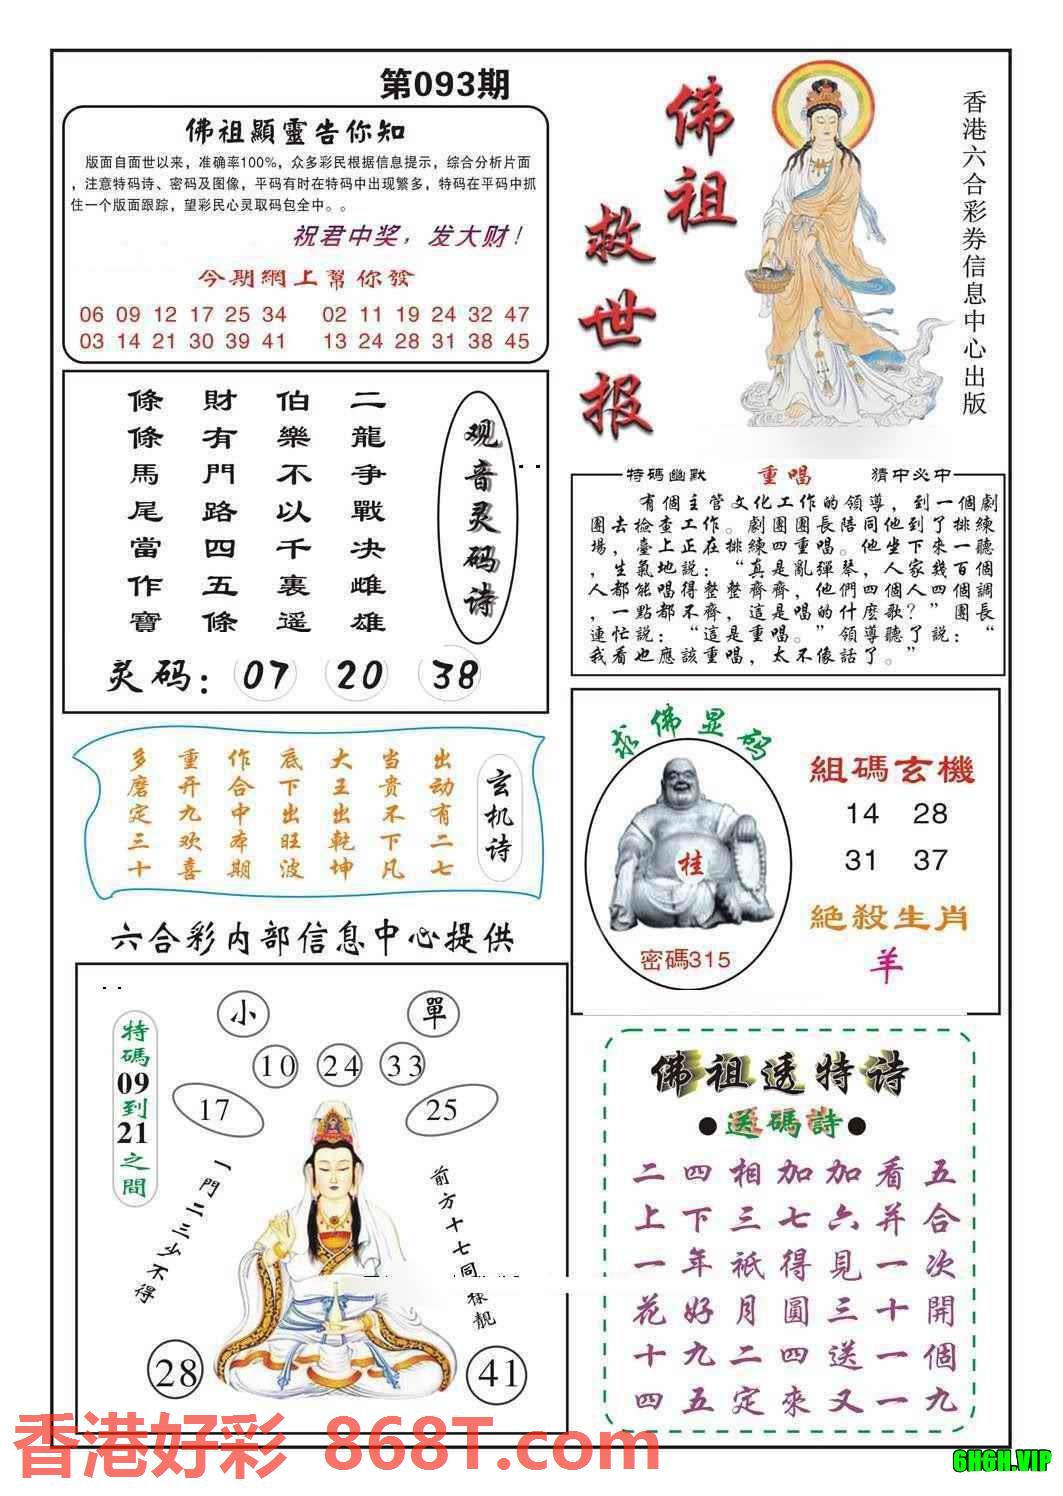 第093期
佛祖顯靈告你知
版面自面世以来，准确率100%，众多彩民根据信息提示，综合分析片面
，注意特码诗、密码及图像，平码有时在特码中出现繁多，特码在平码中抓
住一个版面跟踪，望彩民心灵取码包全中。。
祝君中奖，发大财！
今期網上幫你發
06 09 12 17 25 34 02 11 19 24 32 47
03 14 21 30 39 41 13 24 28 31 38 45
佛祖
救世报
香港六合彩券信息中心出版
观音灵码诗
二龍争戰决雌雄
伯樂不以千裏遥
財有門路四五條
條條馬尾當作寶
灵码：07 20 38
特码幽默 重唱 猜中必中
有個主管文化工作的領導，到一個劇
團去檢查工作。劇團團長陪同他到了排練
場，臺上正在排練四重唱。他坐下來一聽
，生氣地説：“真是亂彈琴，人家幾百個
人都能唱得整整齊齊，他們四個人四個調
，一點都不齊，這是唱的什麽歌？”團長
連忙説：“這是重唱。”領導聽了説：“
我看也應該重唱，太不像話了。”
玄机诗
出动有二七
当贵不下凡
大王出乾坤
底下出旺波
作合中本期
重开九欢喜
多磨定三十
求佛显码
桂
密碼315
組碼玄機
14 28
31 37
絶殺生肖
羊
六合彩内部信息中心提供
特碼09到21之間
小 單
10 24 33
17 25
一門二三少不得
前方十七同樣靚
28 41
佛祖透特诗
●送碼詩●
五合次開個九
看并一十一一
加六見三送又
加七得圓四來
相三衹月二定
四下年好九五
二上一花十四
香港好彩 868T.com
6H6H.VIP